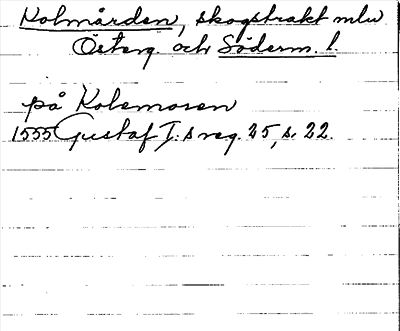 Kolmården, skogstrakt mlu
Österg. och Söderm. l.
på Kolemosen
1555 Gustaf I:s reg. 25, s. 22.